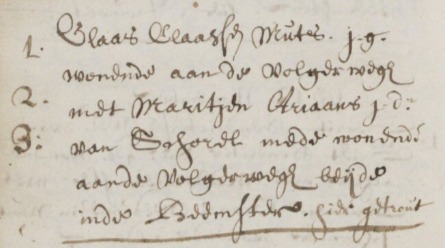 1. Claas Claassen Mutes. j.g.
wonende aan de Volgerwegh
2. met Maritjen Ariaans j.d.
3. van Schorel mede wonende
aande Volgerwegh beijde
inde Beemster. hier getrout